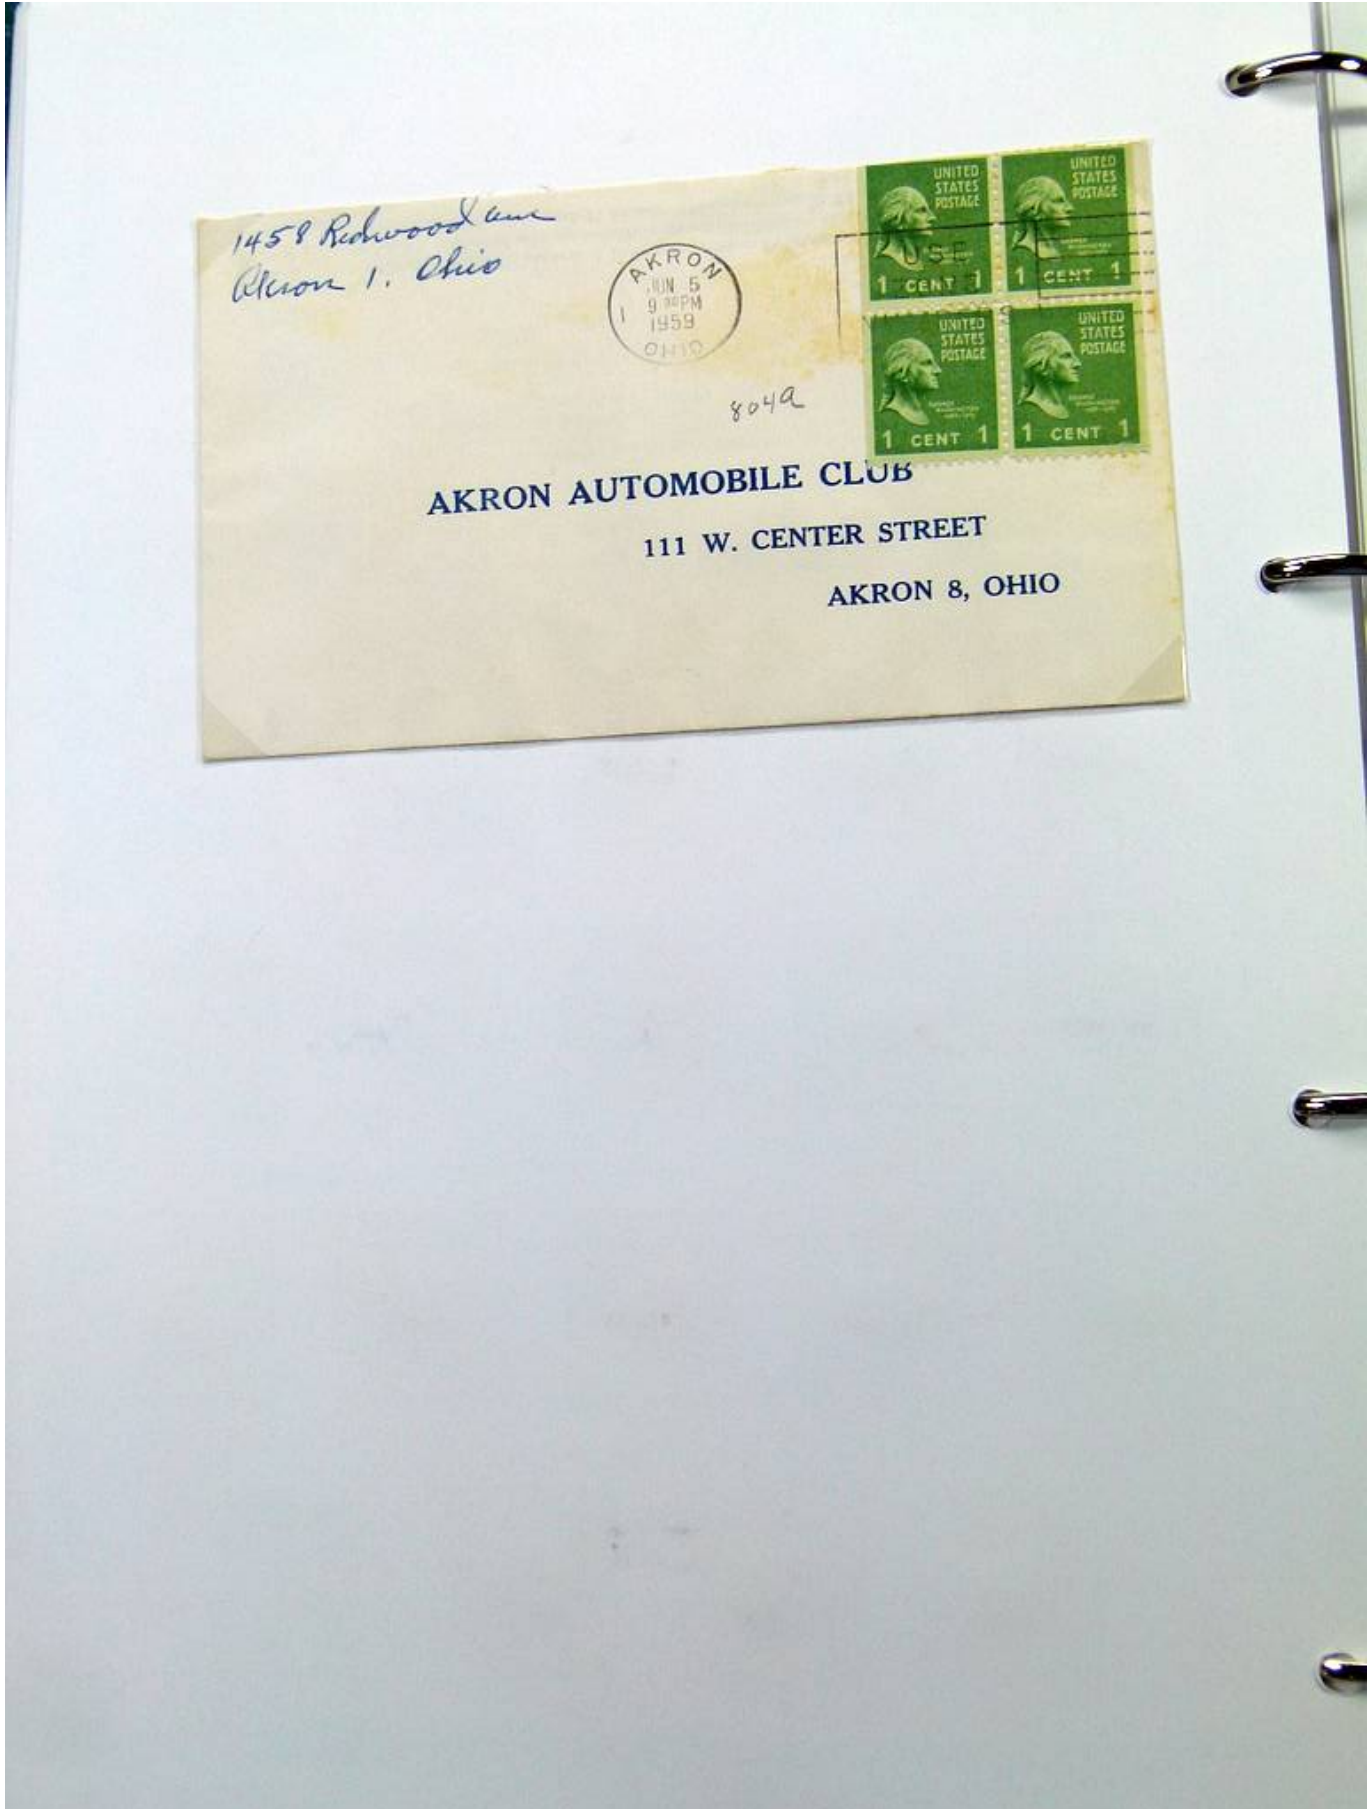 1458 Redwood ave
Akron 1. Ohio
AKRON
JUN 5
9 PM
1
1959
OHIO
USE
UNITED
STATES
POSTAGE
1 CENT 1
UNITED
STATES
POSTAGE
1 CENT 1
UNITED
STATES
POSTAGE
GEORGE
WASHINGTON
1 CENT 1
UNITED
STATES
POSTAGE
GEORGE
WASHINGTON
1 CENT 1
804a
AKRON AUTOMOBILE CLUB
111 W. CENTER STREET
AKRON 8, OHIO